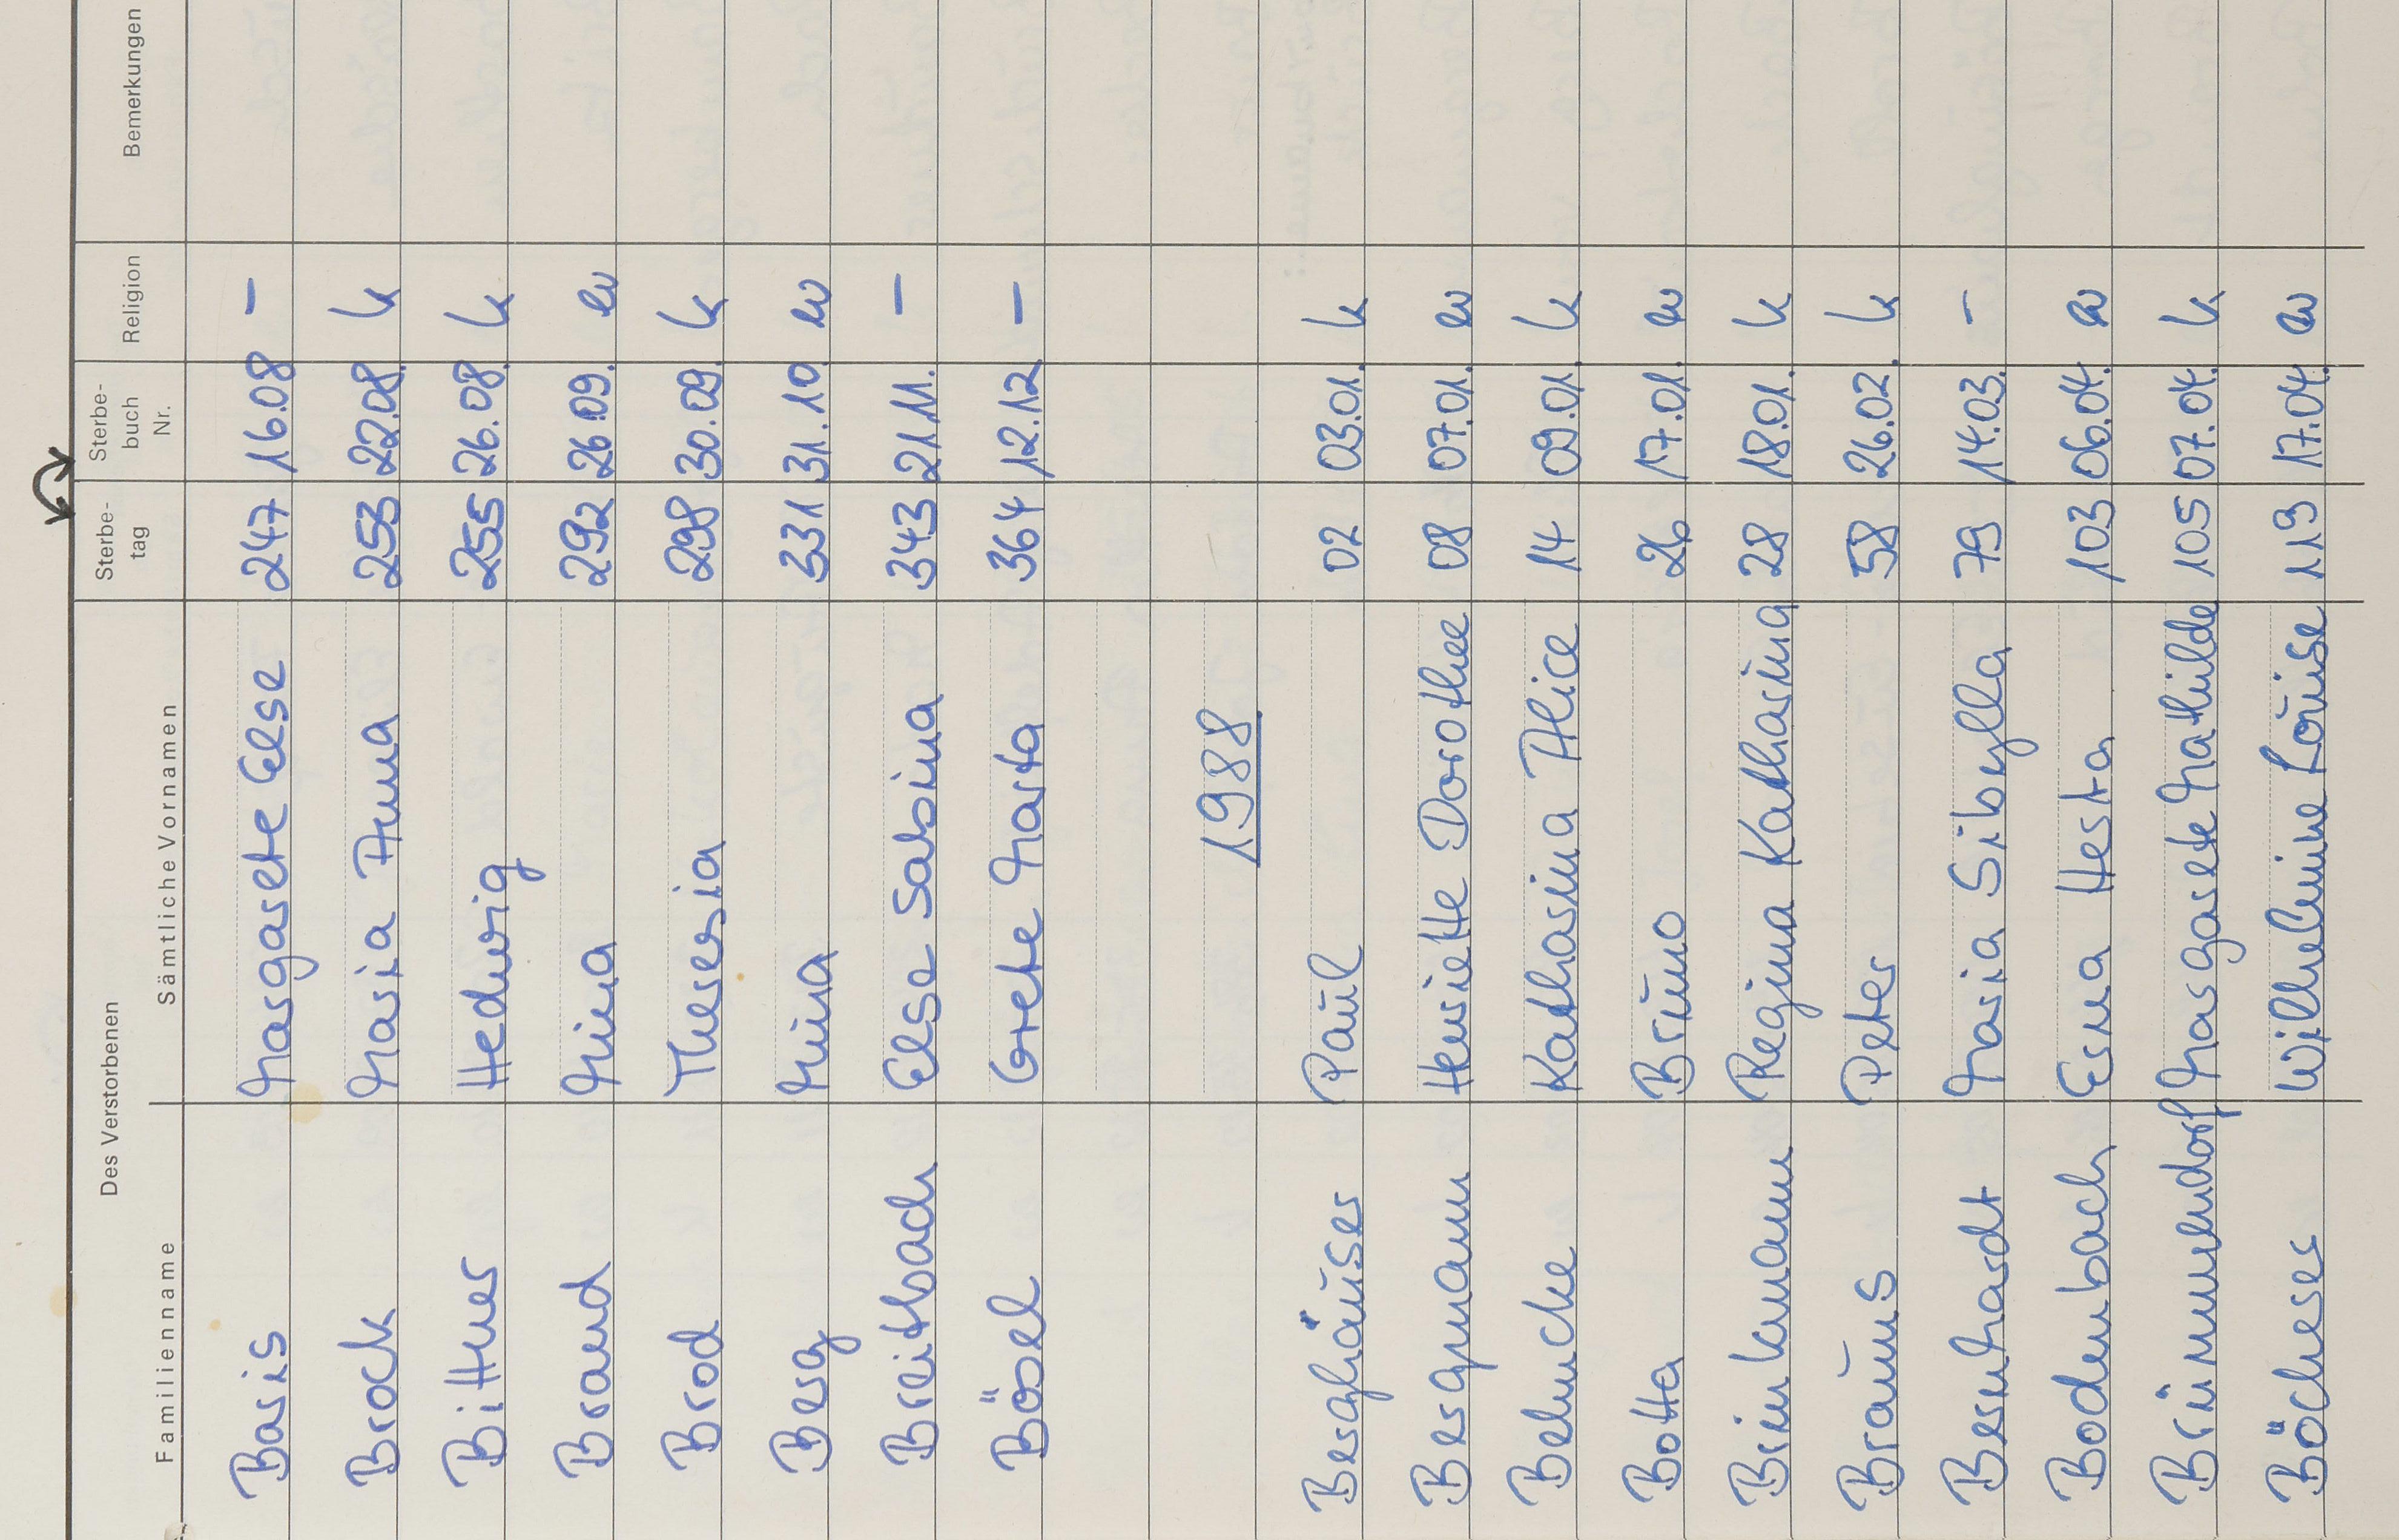 Des Verstorbenen Sterbe- Sterbe- Religion Bemerkungen
tag buch
Familienname Sämtliche Vornamen Nr.
Baris Margarete Else 247 16.08 –
Brock Maria Anna 253 22.08. k
Bittner Hedwig 255 26.08. k
Brand Mina 292 26.09. ev
Brod Theresia 298 30.09. k
Berg Mina 331 31.10. ev
Breitbach Else Sabina 343 21.11. –
Bösel Grete Marta 364 12.12 –
1988
Berghäuser Paul 02 03.01. k
Bergmann Henriette Dorothee 08 07.01. ev
Behncke Katharina Alice 14 09.01. k
Botta Bruno 26 17.01. ev
Brinkmann Regina Katharina 28 18.01. k
Brauns Peter 58 26.02. k
Bernhardt Maria Sibylla 79 14.03. –
Bodenbach Erna Herta 103 06.04. ev
Brimmendorf Margarete Mathilde 105 07.04. k
Böcherer Wilhelmine Louise 119 17.04. ev